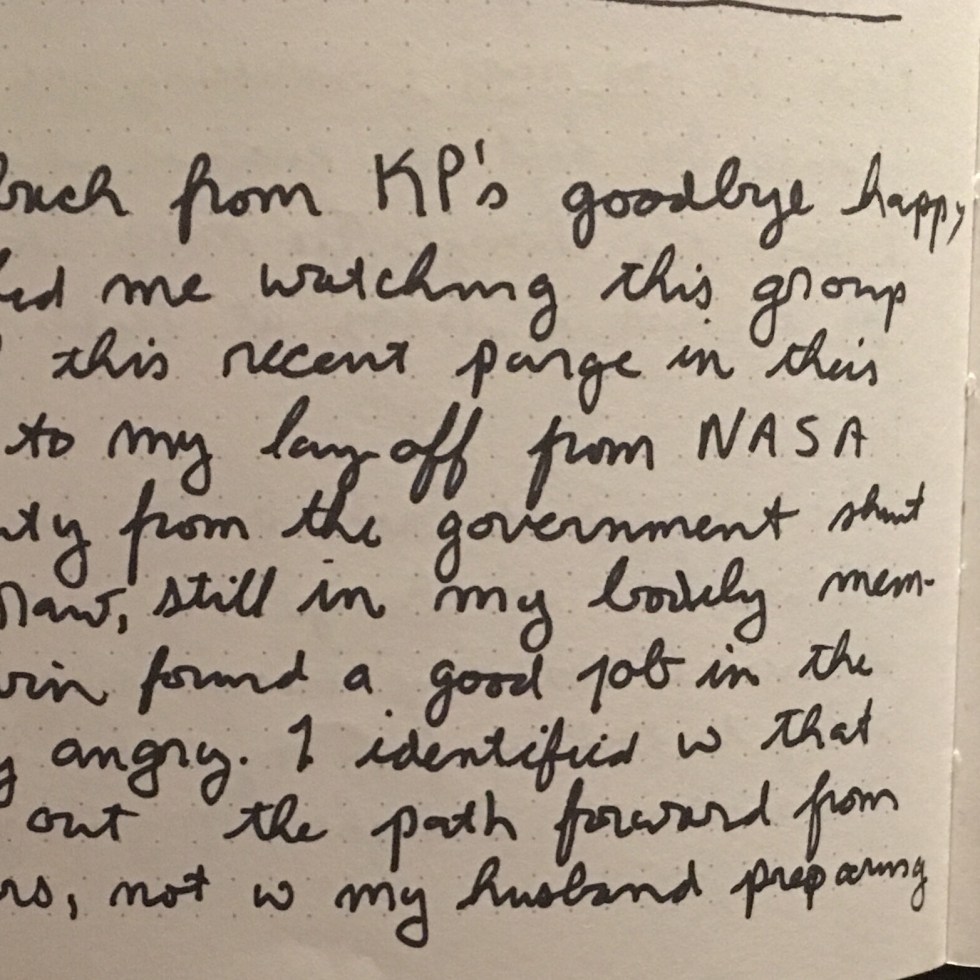 back from KP's goodbye happy
me watching this group
this recent purge in this
to my lay-off from NASA
from the government shut
still in my bodily mem-
found a good job in the
angry. I identified w that
out the path forward from
not w my husband preparing